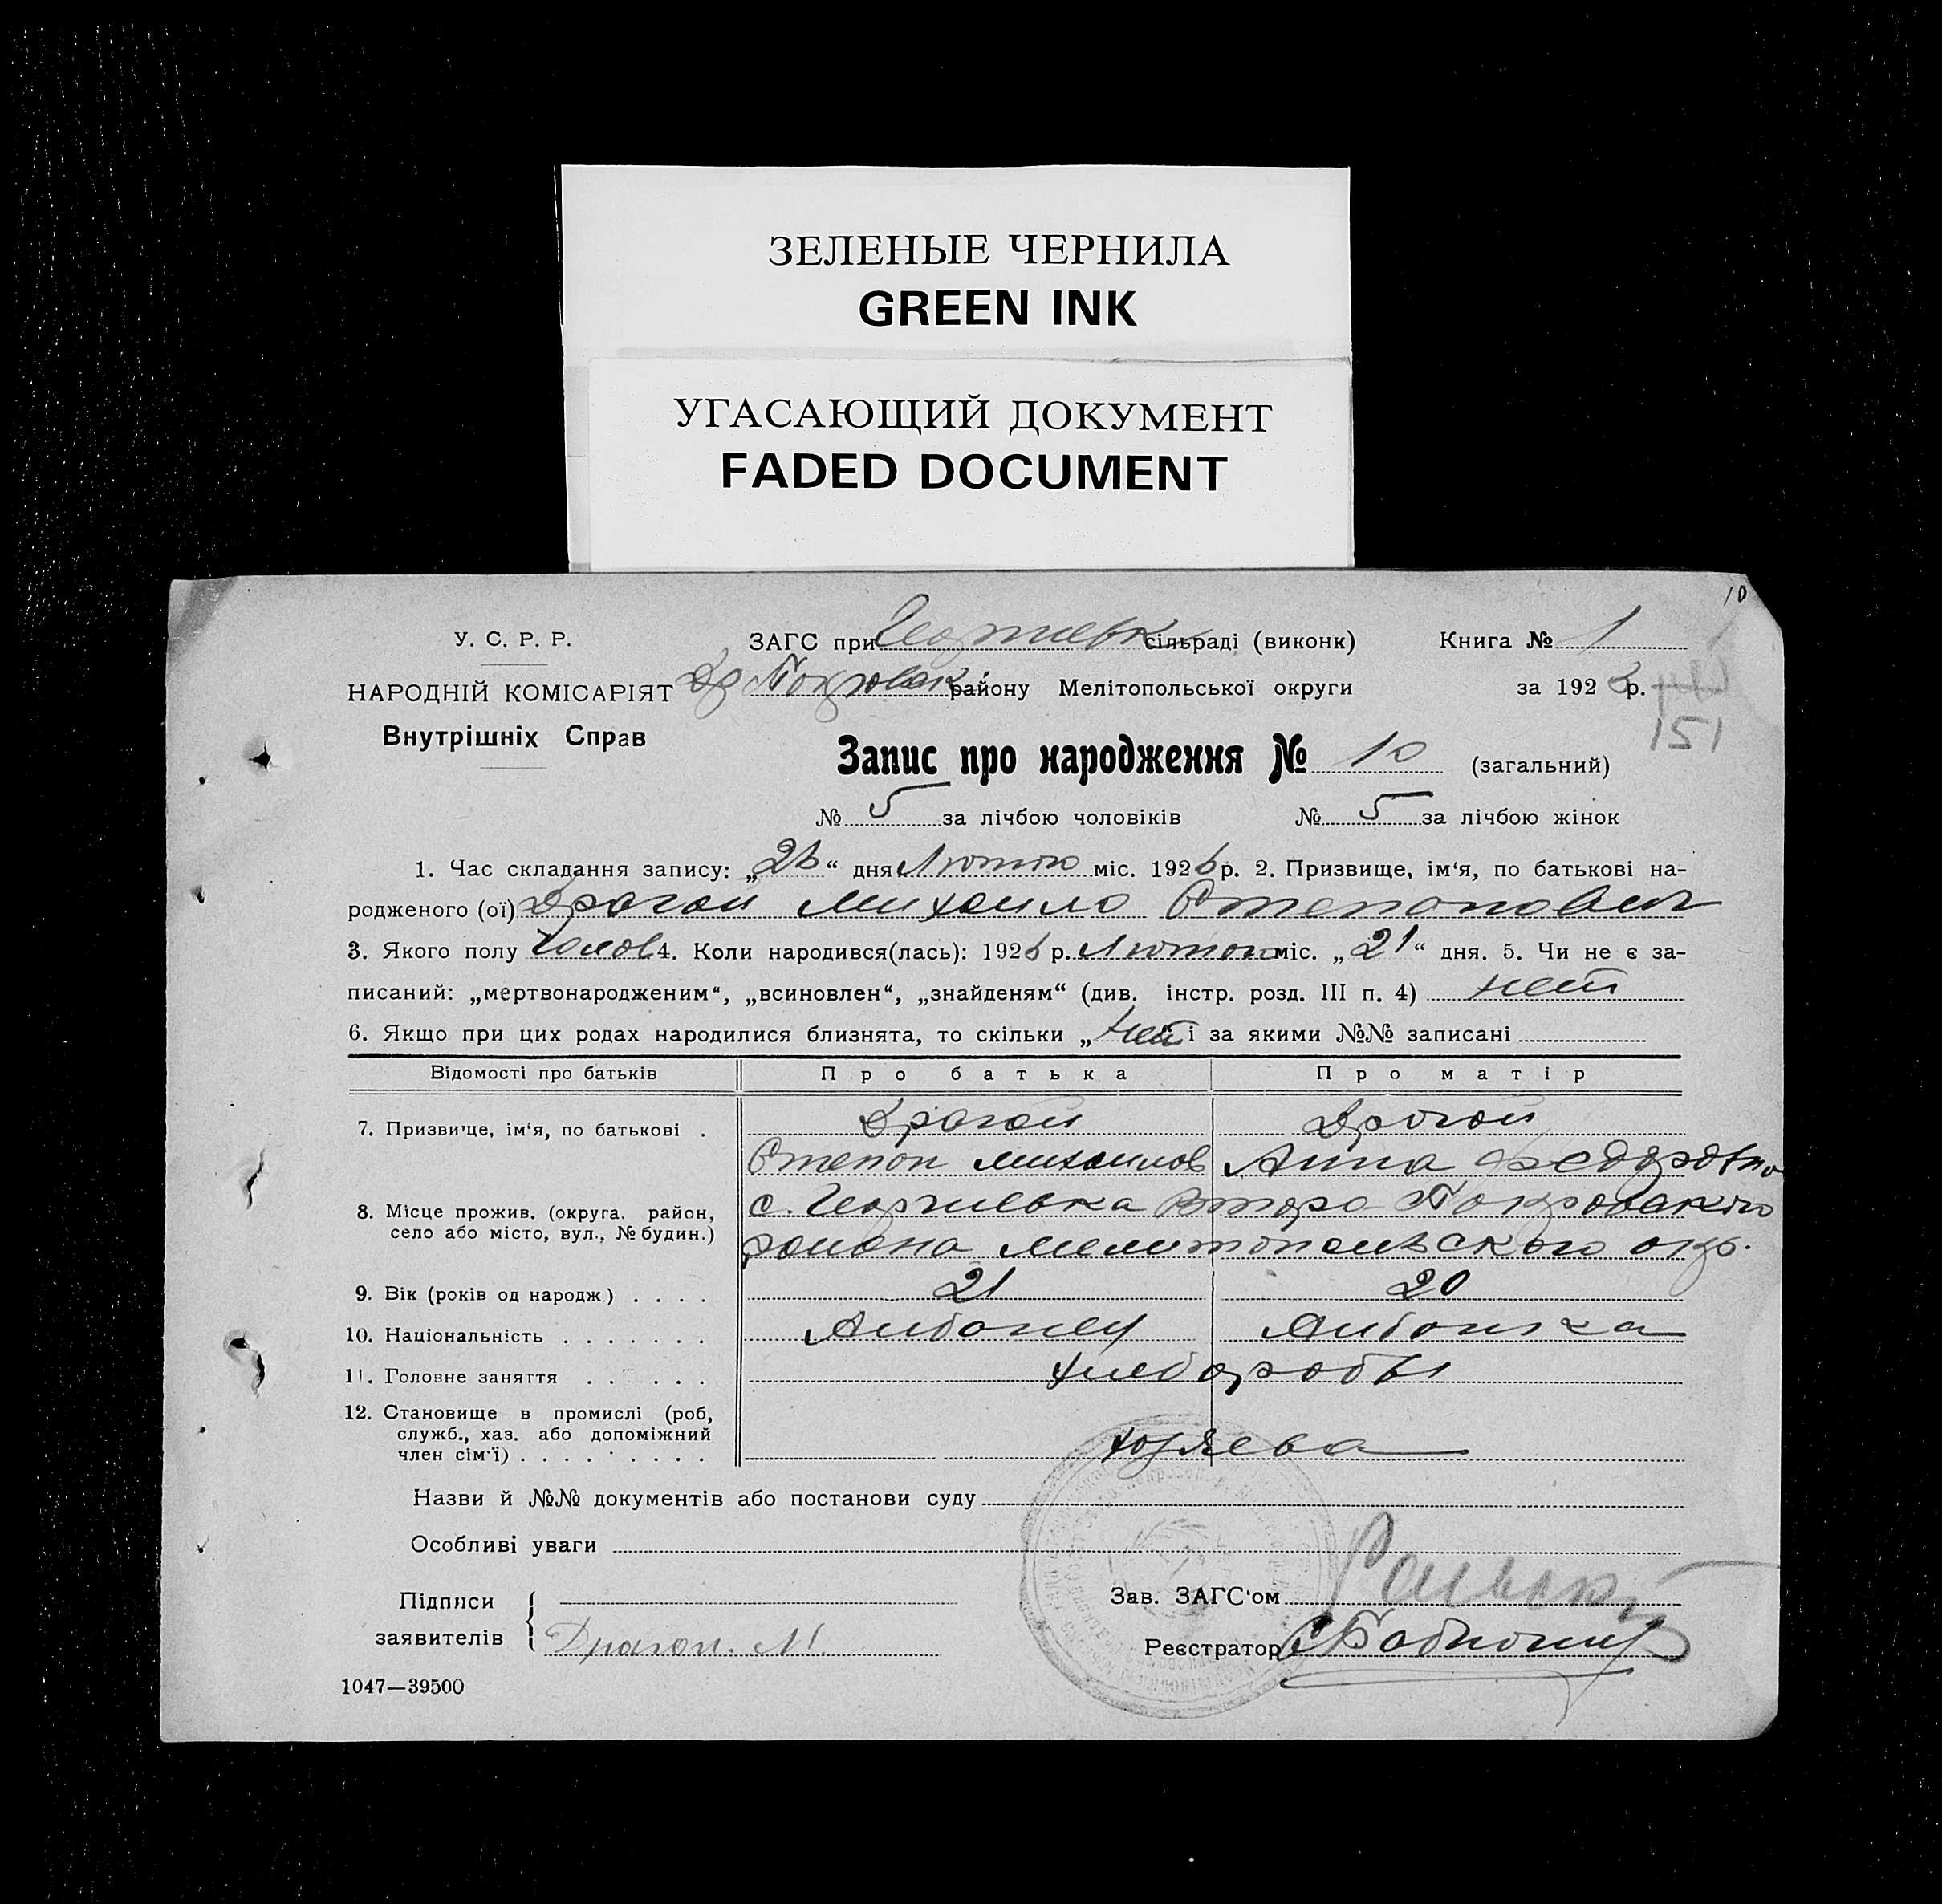 ЗЕЛЕНЫЕ ЧЕРНИЛА
GREEN INK
УГАСАЮЩИЙ ДОКУМЕНТ
FADED DOCUMENT
10
У. С. Р. Р.
ЗАГС при Георгиевк сільраді (виконк)
Книга № 1
НАРОДНІЙ КОМІСАРІЯТ
Покровск району Мелітопольської округи
за 192 р.
Внутрішніх Справ
151
Запис про народження № 10 (загальний)
№ 5 за лічбою чоловіків № 5 за лічбою жінок
1. Час складання запису: „ “ дня Лютого міс. 1926 р. 2. Призвище, ім‘я, по батькові на-
родженого (ої) Драгой Михаило Степанович
3. Якого полу Чолов 4. Коли народився(лась): 1926 р. Лютого міс. „21“ дня. 5. Чи не є за-
писаний: „мертвонародженим“, „всиновлен“, „знайденям“ (див. інстр. розд. III п. 4) нет
6. Якщо при цих родах народилися близнята, то скільки „нет і за якими №№ записані
Відомості про батьків Про батька Про матір
7. Призвище, ім‘я, по батькові . Драгой Драгой
Степан Михаилов Анна Федоровна
8. Місце прожив. (округа. район, с. Георгиевка Покровского
село або місто, вул., № будин.) района Мелитопольского окр.
9. Вік (років од народж) . . . . 21 20
10. Національність . . . . . . . Албанец Албанка
11. Головне заняття . . . . . . хлеборобы
12. Становище в промислі (роб,
служб., хаз. або допоміжний
член сім‘ї) . . . . . . . . .
Назви й №№ документів або постанови суду
Особливі уваги
Підписи
заявителів Драгой. М.
Зав. ЗАГС‘ом
Реєстратор
1047—39500